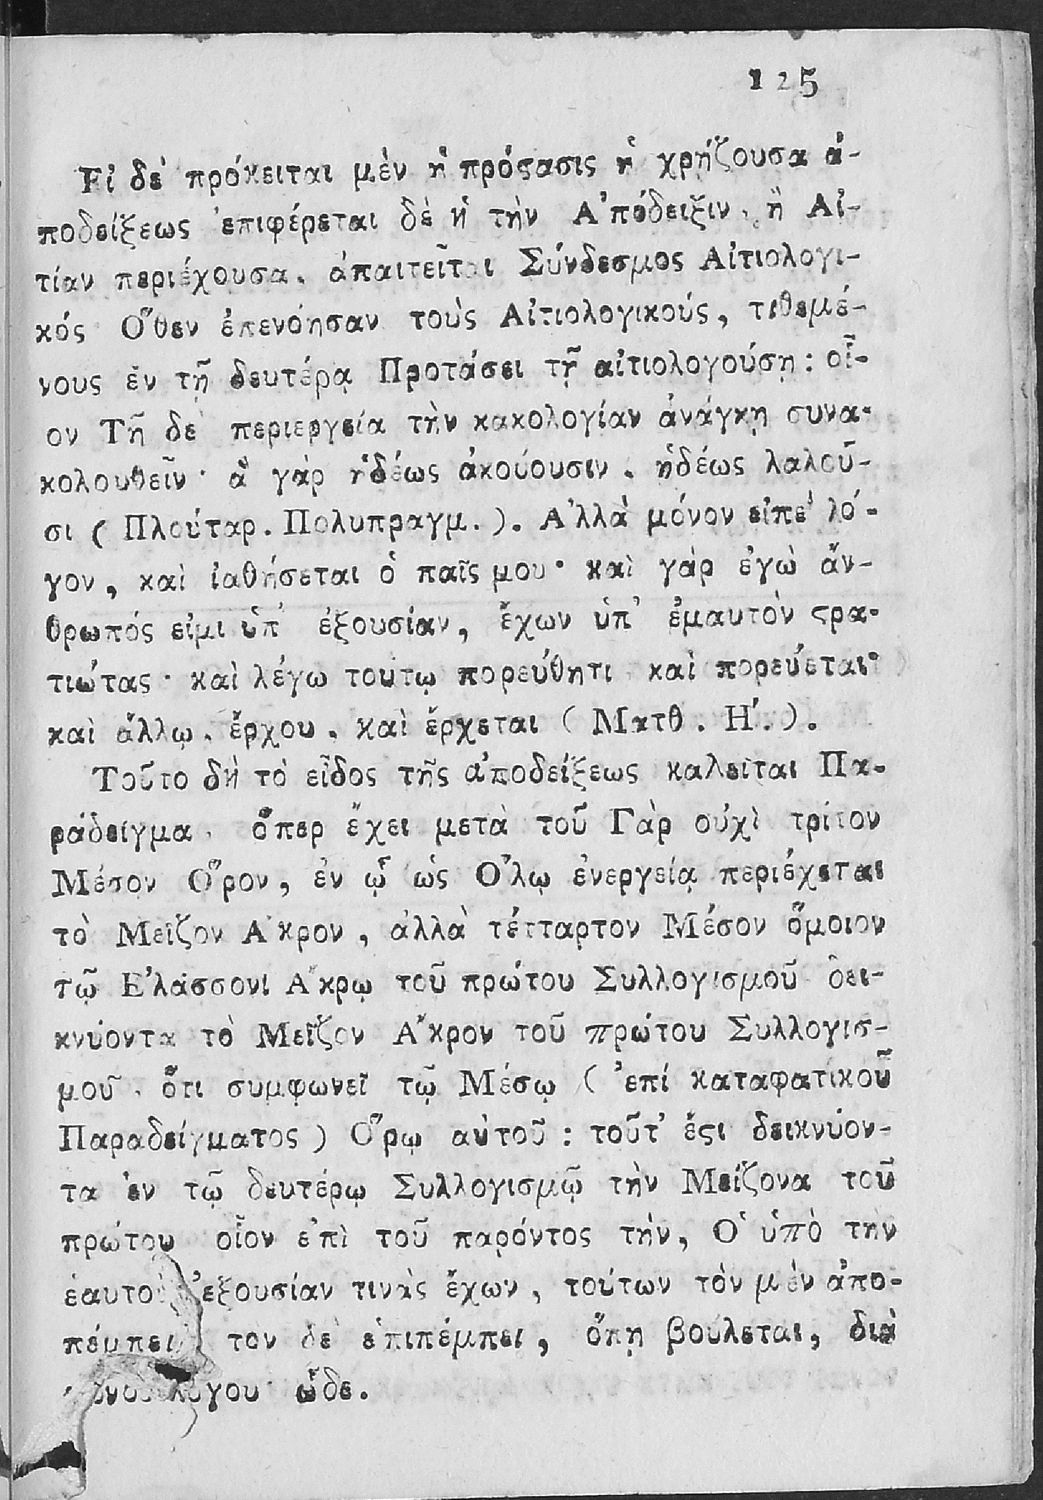 125
Εἰ δὲ πρόκειται μὲν ἡ πρότασις ἡ χρῄζουσα ἀ-
ποδείξεως ἐπιφέρεται δὲ ἡ τὴν Ἀπόδειξιν, ἢ Αἰ-
τίαν περιέχουσα, ἀπαιτεῖται Σύνδεσμος Αἰτιολογι-
κός Ὅθεν ἐπενόησαν τοὺς Αἰτιολογικούς, τιθεμέ-
νους ἐν τῇ δευτέρᾳ Προτάσει τῇ αἰτιολογούσῃ: οἷ-
ον Τῇ δὲ περιεργεία τὴν κακολογίαν ἀνάγκη συνα-
κολουθεῖν· ἃ γὰρ ἡδέως ἀκούουσιν, ἡδέως λαλοῦ-
σι (Πλούταρ. Πολυπραγμ.). Ἀλλὰ μόνον εἰπὲ λό-
γον, καὶ ἰαθήσεται ὁ παῖς μου· καὶ γὰρ ἐγὼ ἄν-
θρωπός εἰμι ὑπ' ἐξουσίαν, ἔχων ὑπ' ἐμαυτὸν ϛρα-
τιώτας· καὶ λέγω τούτῳ πορεύθητι καὶ πορεύεται·
καὶ ἄλλῳ, ἔρχου, καὶ ἔρχεται (Ματθ. Η'.).
Τοῦτο δὴ τὸ εἶδος τῆς ἀποδείξεως καλεῖται Πα-
ράδειγμα, ὅπερ ἔχει μετὰ τοῦ Γὰρ οὐχὶ τρίτον
Μέσον Ὅρον, ἐν ᾧ ὡς Ὅλῳ ἐνεργείᾳ περιέχεται
τὸ Μεῖζον Ἄκρον, ἀλλὰ τέτταρτον Μέσον ὅμοιον
τῷ Ἐλάσσονι Ἄκρῳ τοῦ πρώτου Συλλογισμοῦ δει-
κνύοντα τὸ Μεῖζον Ἄκρον τοῦ πρώτου Συλλογισ-
μοῦ, ὅτι συμφωνεῖ τῷ Μέσῳ (ἐπί καταφατικοῦ
Παραδείγματος) Ὅρῳ αὐτοῦ: τοῦτ' ἔϛι δεικνύον-
τα ἐν τῷ δευτέρῳ Συλλογισμῷ τὴν Μείζονα τοῦ
πρώτου οἷον ἐπὶ τοῦ παρόντος τήν, Ὁ ὑπὸ τὴν
ἑαυτοῦ ἐξουσίαν τινὰς ἔχων, τούτων τὸν μὲν ἀπο-
πέμπει τὸν δὲ ἐπιπέμπει, ὅπῃ βούλεται, διὰ
λόγου ὧδε.